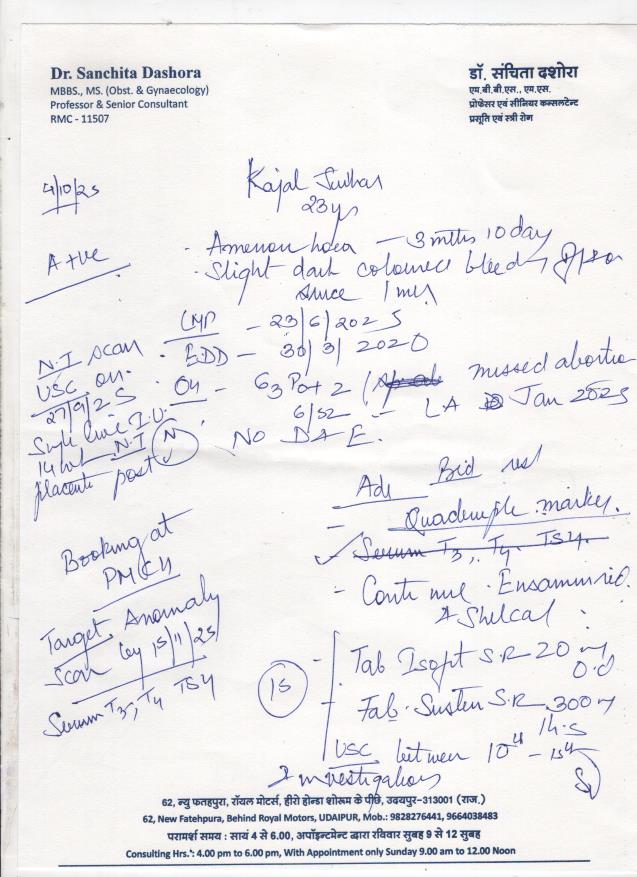 Dr. Sanchita Dashora
MBBS., MS. (Obst. & Gynaecology)
Professor & Senior Consultant
RMC - 11507
डॉ. संचिता दशोरा
एम.बी.बी.एस., एम.एस.
प्रोफेसर एवं सीनियर कन्सलटेन्ट
प्रसूति एवं स्त्री रोग
4/10/25
Kajal
23 yrs
A +ve
- 3 mths 10 day
Slight dark coloured
since 1 
LMP - 23/6/2025
EDD - 30/3/202
OH - G3 P0+2 ( missed abortion
6/52 - LA Jan 2025
NO DAE.
N.T scan
USG on
27/9/25
Single live I.U.
14 N.T (N)
placenta post
Adv Bed rest
- Quadruple marker.
Serum T3, T4 TSH.
- Continue
& Shelcal
- Tab S.R 20 mg
O.D
- Tab. Susten S.R. 300 mg
H.S
15
USG between 10th - 15th
Investigations
Booking at
PMCH
Target Anomaly
Scan by 15/11/25
Serum T3, T4 TSH
62, न्यु फतहपुरा, रॉयल मोटर्स, हीरो होन्डा शोरूम के पीछे, उदयपुर-313001 (राज.)
62, New Fatehpura, Behind Royal Motors, UDAIPUR, Mob.: 9828276441, 9664038483
परामर्श समय : सायं 4 से 6.00, अपॉइन्टमेन्ट द्वारा रविवार सुबह 9 से 12 सुबह
Consulting Hrs.: 4.00 pm to 6.00 pm, With Appointment only Sunday 9.00 am to 12.00 Noon